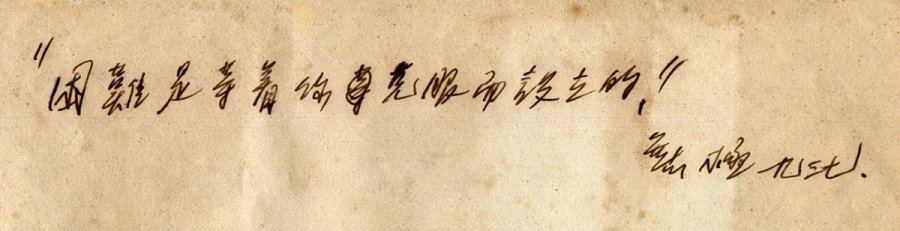 "困難是等着你克服而設立的,"
九二七.